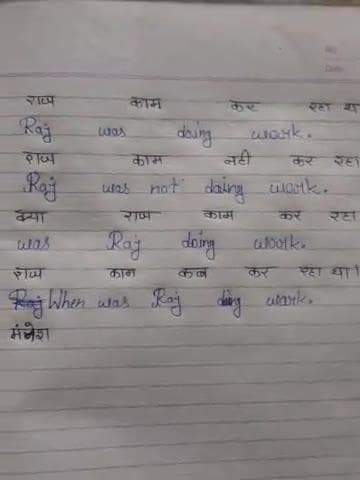 राज काम कर रहा था
Raj was doing work.
राज काम नही कर रहा
Raj was not doing work.
क्या राज काम कर रहा
was Raj doing work.
राज काम कब कर रहा था।
When was Raj doing work.